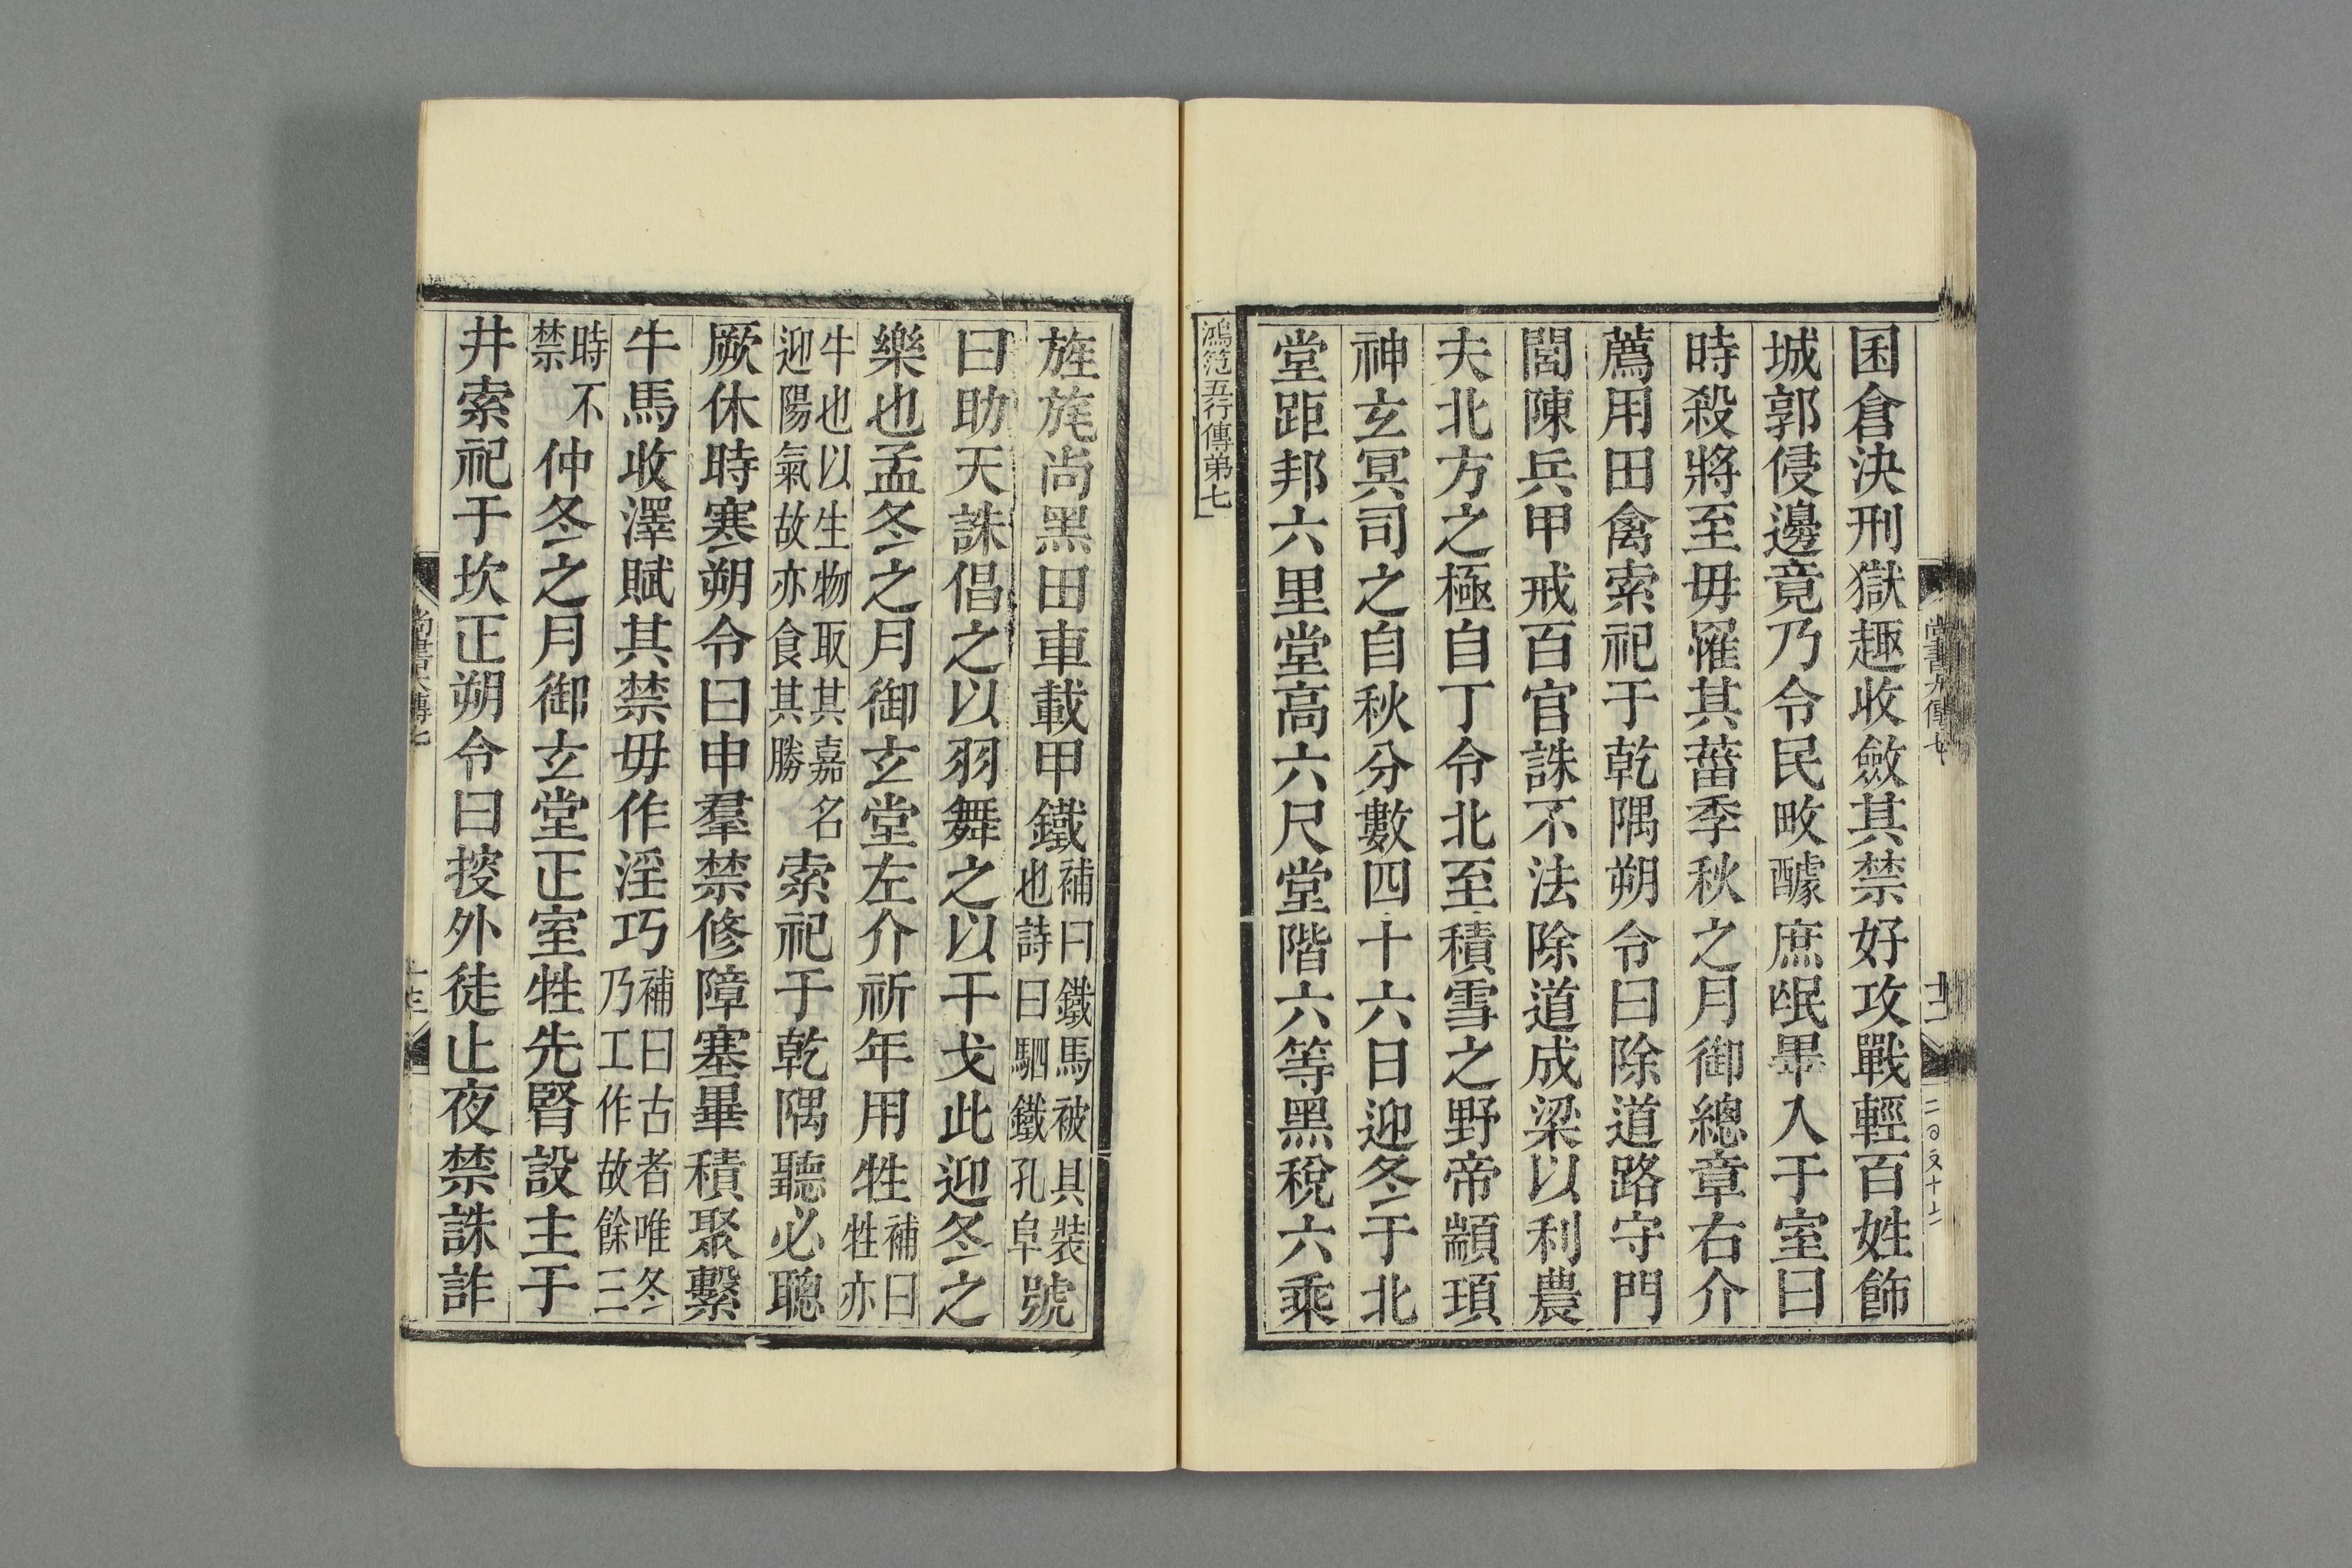 囷倉決刑獄趣收斂其禁好攻戰輕百姓飾
城郭侵邊竟乃令民畋醵庶氓畢入于室曰
時殺將至毋罹其菑季秋之月御總章右介
薦用田禽索祀于乾隅朔令曰除道路守門
閭陳兵甲戒百官誅不法除道成梁以利農
夫北方之極自丁令北至積雪之野帝顓頊
神玄冥司之自秋分數四十六日迎冬于北
堂距邦六里堂高六尺堂階六等黑稅六乘
鴻范五行傳弟七
旌旄尚黑田車載甲鐵補曰鐵馬被具裝
也詩曰駟鐵孔阜號
曰助天誅倡之以羽舞之以干戈此迎冬之
樂也孟冬之月御玄堂左介祈年用牲補曰
牲亦
牛也以生物取其嘉名
迎陽氣故亦食其勝索祀于乾隅聽必聰
厥休時寒朔令曰申羣禁修障塞畢積聚繫
牛馬收澤賦其禁毋作淫巧補曰古者唯冬
乃工作故餘三
時不
禁仲冬之月御玄堂正室牲先腎設主于
井索祀于坎正朔令曰挍外徒止夜禁誅詐